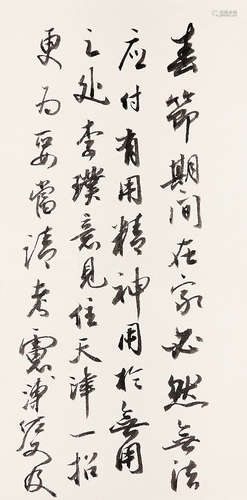 春節期间在家必然無法
应付有用精神用於無用
之处李璞意見住天津一招
更为妥當请考慮溥